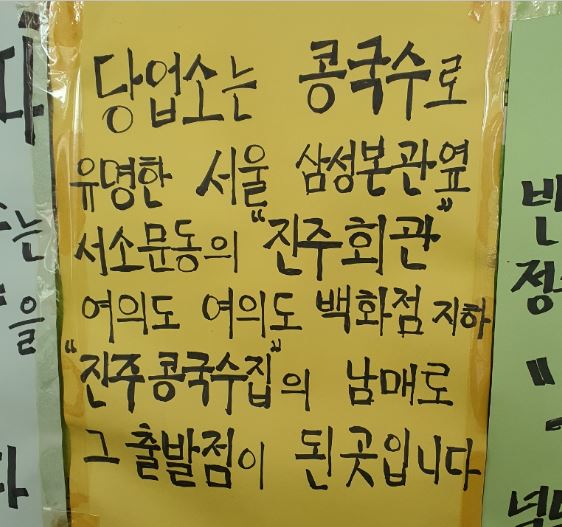 당업소는 콩국수로
유명한 서울 삼성본관옆
서소문동의 "진주회관"
여의도 여의도 백화점 지하
"진주콩국수집"의 남매로
그 출발점이 된곳입니다